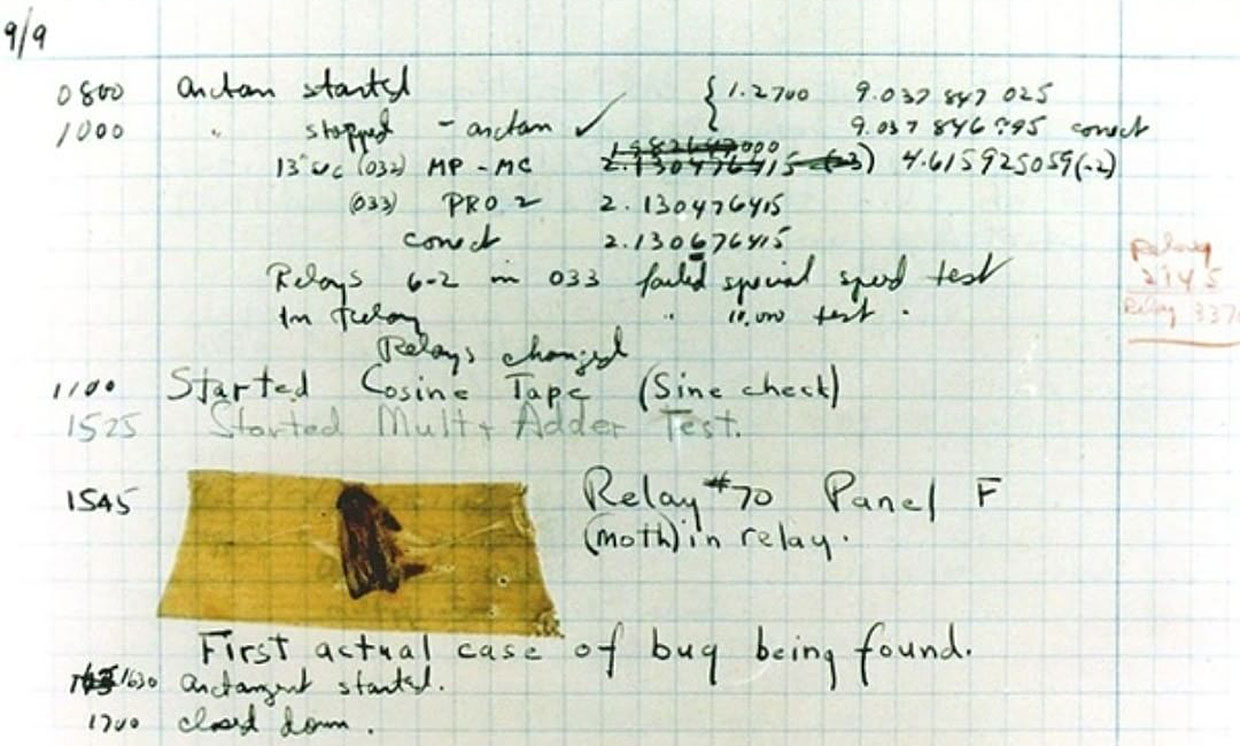 9/9
0800 arctan started { 1.2700 9.037 847 025
1000 " stopped - arctan ✓ 9.037 846 995 correct
13" uc (032) MP - MC 2.130476415 (-3) 4.615925059(-2)
(033) PRO 2 2.130476415
correct 2.130676415
Relays 6-2 in 033 failed special speed test
In Relay " 10,000 test.
Relays changed
1100 Started Cosine Tape (Sine check)
1525 Started Mult + Adder Test.
1545 Relay #70 Panel F
(moth) in relay.
First actual case of bug being found.
1630 arctangent started.
1700 closed down.
Relay
2145
Relay 337